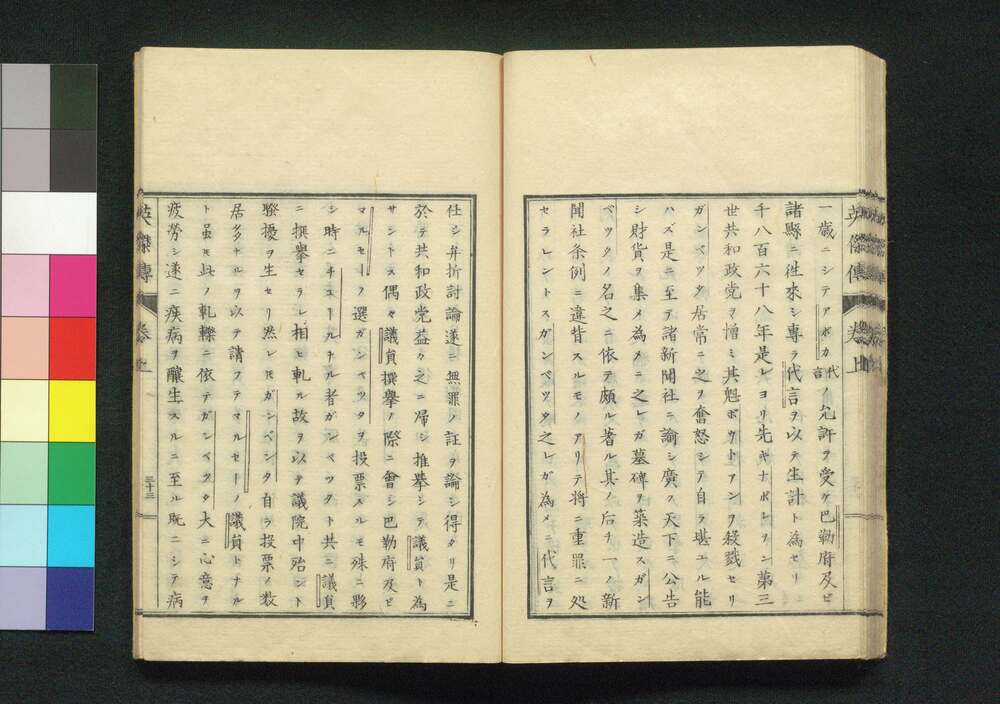 一歳ニシテアボカ代言ノ允許ヲ受ケ巴勒府及ビ
諸縣ニ徃來シ專ラ代言ヲ以テ生計ト為セリ
千八百六十八年是レヨリ先キナポレヲン第三
世共和政党ヲ憎ミ其魁ボウトアンヲ殺戮セリ
ガンベツタ居常ニ之ヲ奮怒シテ自ラ堪ユル能
ハズ是ニ至テ諸新聞社ニ諭シ廣ク天下ニ公告
シ財貨ヲ集メ為メニ之レガ墓碑ヲ築造スガン
ベツタノ名之ニ依テ頗ル著ル其ノ后チ一ノ新
聞社条例ニ違背スルモノアリテ将ニ重罪ニ処
セラレントスガンベツタ之レガ為メニ代言ヲ
仕シ弁折討論遂ニ無罪ノ証ヲ論シ得タリ是ニ
於テ共和政党益々之ニ帰シ推擧シテ議員ト為
サントス偶々議員撰擧ノ際ニ會シ巴勒府及ビ
マルセーノ選ガンベツタヲ投票スルモ殊ニ夥
シ時ニチユールチル者ガンベツタト共ニ議員
ニ撰擧セラレ相ヒ軋ル故ヲ以テ議院中殆ント
騒擾ヲ生セリ然レモガンベシタ自ラ投票ノ数
居多ナルヲ以テ請フテマルセーノ議員トナル
ト虽モ此ノ軋轢ニ依テガンベツタ大ニ心意ヲ
疲労シ遂ニ疾病ヲ釀生スルニ至ル既ニシテ病
英傑傳
卷上
三十三